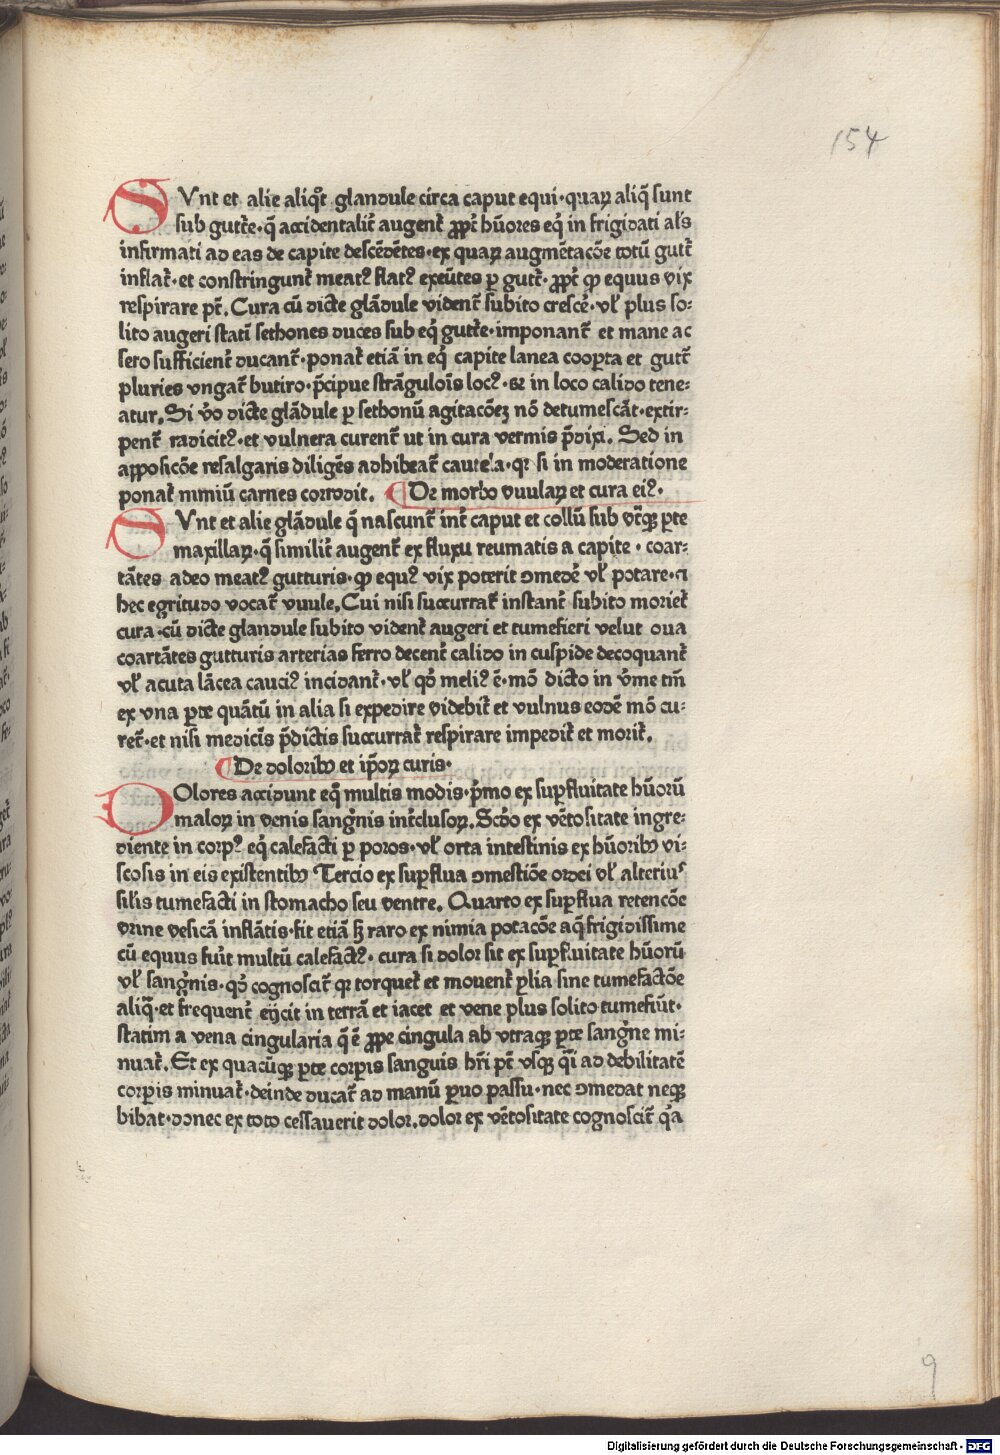 154
SVnt et alie aliqͦt glandule circa caput equi·quaꝝ aliq̃ sunt
sub gutt̃e·q̃ accidentalit̃ augent̃ ꝓpt̃ hũores eq̃ in frigidati al's
infirmati ad eas de capite descẽdẽtes·ex quaꝝ augmẽtacõe totũ gutt̃
inflat̃·et constringunt meatꝰ flatꝰ exeũtes ꝑ gutt̃·ꝓpt̃ ꝙ equus vix
respirare pt̃. Cura cũ dicte glãdule vident̃ subito crescẽ·vl' plus so⸗
lito augeri statĩ sethones duces sub eq̃ gutt̃e·imponant̃ et mane ac
sero sufficient̃ ducant̃·ponat̃ etiã in eq̃ capite lanea cooꝑta et gutt̃
pluries vngat̃ butiro·p̃cipue strãguloĩs locꝰ·⁊ in loco calido tene⸗
atur. Si ṽo dicte glãdule ꝑ sethonũ agitacõeꝫ nõ detumescãt·extir⸗
pent̃ radicitꝰ·et vulnera curent̃ ut in cura vermis p̃dixi. Sed in
apposicõe resalgaris diligẽs adhibeat̃ caute'a·qꝛ si in moderatione
ponat̃ nimiũ carnes corrodit. ¶De morbo vuulaꝝ et cura eiꝰ.
SVnt et alie glãdule q̃ nascunt̃ int̃ caput et collũ sub vt̃qꝫ ꝑte
maxillaꝝ·q̃ similit̃ augent̃ ex fluxu reumatis a capite·coar⸗
tãtes adeo meatꝰ gutturis·ꝙ equꝰ vix poterit ꝯmedẽ vl' potare·⁊
hec egritudo vocat̃ vuule. Cui nisi succurrat̃ instant̃ subito moriet̃
cura·cũ dicte glandule subito vident̃ augeri et tumefieri velut oua
coartãtes gutturis arterias ferro decent̃ calido in cuspide decoquant̃
vl' acuta lãcea cauciꝰ incidant̃·vl' qͦd meliꝰ ẽ·mõ dicto in ṽme tm̃
ex vna ꝑte quãtũ in alia si expedire videbit̃ et vulnus eodẽ mõ cu⸗
ret̃·et nisi medicĩs p̃dictis succurrat̃ respirare impedit̃ et morit̃.
¶De doloribꝫ et ip̃oꝝ curis·
DOlores accidunt eq̃ multis modis·p̃mo ex suꝑfluitate hũorũ
maloꝝ in venis sang̃nis int̃clusoꝝ. Scd̃o ex vẽtositate ingre⸗
diente in corpꝰ eq̃ calefacti ꝑ poros·vl' orta intestinis ex hũoribꝫ vi⸗
scosis in eis existentibꝫ Tercio ex suꝑflua ꝯmestiõe ordei vl' alteriuˢ
silis tumefacti in stomacho seu ventre. Quarto ex suꝑflua retencõe
vrine vesicã inflãtis·fit etiã sꝫ raro ex nimia potacõe aq̃ frigidissime
cũ equus fũit multũ calefactꝰ·cura si dolor sit ex suꝑfluitate hũorũ
vl' sang̃nis·qͦd cognoscit̃ qꝛ torquet̃ et mouent̃ ꝑlia sine tumefactõe
aliq̃·et frequent̃ eijcit in terrã et iacet et vene plus solito tumefiũt·
statim a vena cingularia q̃ ẽ ꝓpe cingula ab vtraqꝫ ꝑte sang̃ne mi⸗
nuat̃. Et ex quacũqꝫ ꝑte corꝑis sanguis hr̃i pt̃ vsqꝫ q̃i ad debilitatẽ
corꝑis minuat̃·deinde ducat̃ ad manũ ꝑuo passu·nec ꝯmedat neqꝫ
bibat·donec ex toto cessauerit dolor. dolor ex vẽtositate cognoscit̃ q̃a
9
Digitalisierung gefördert durch die Deutsche Forschungsgemeinschaft - DFG